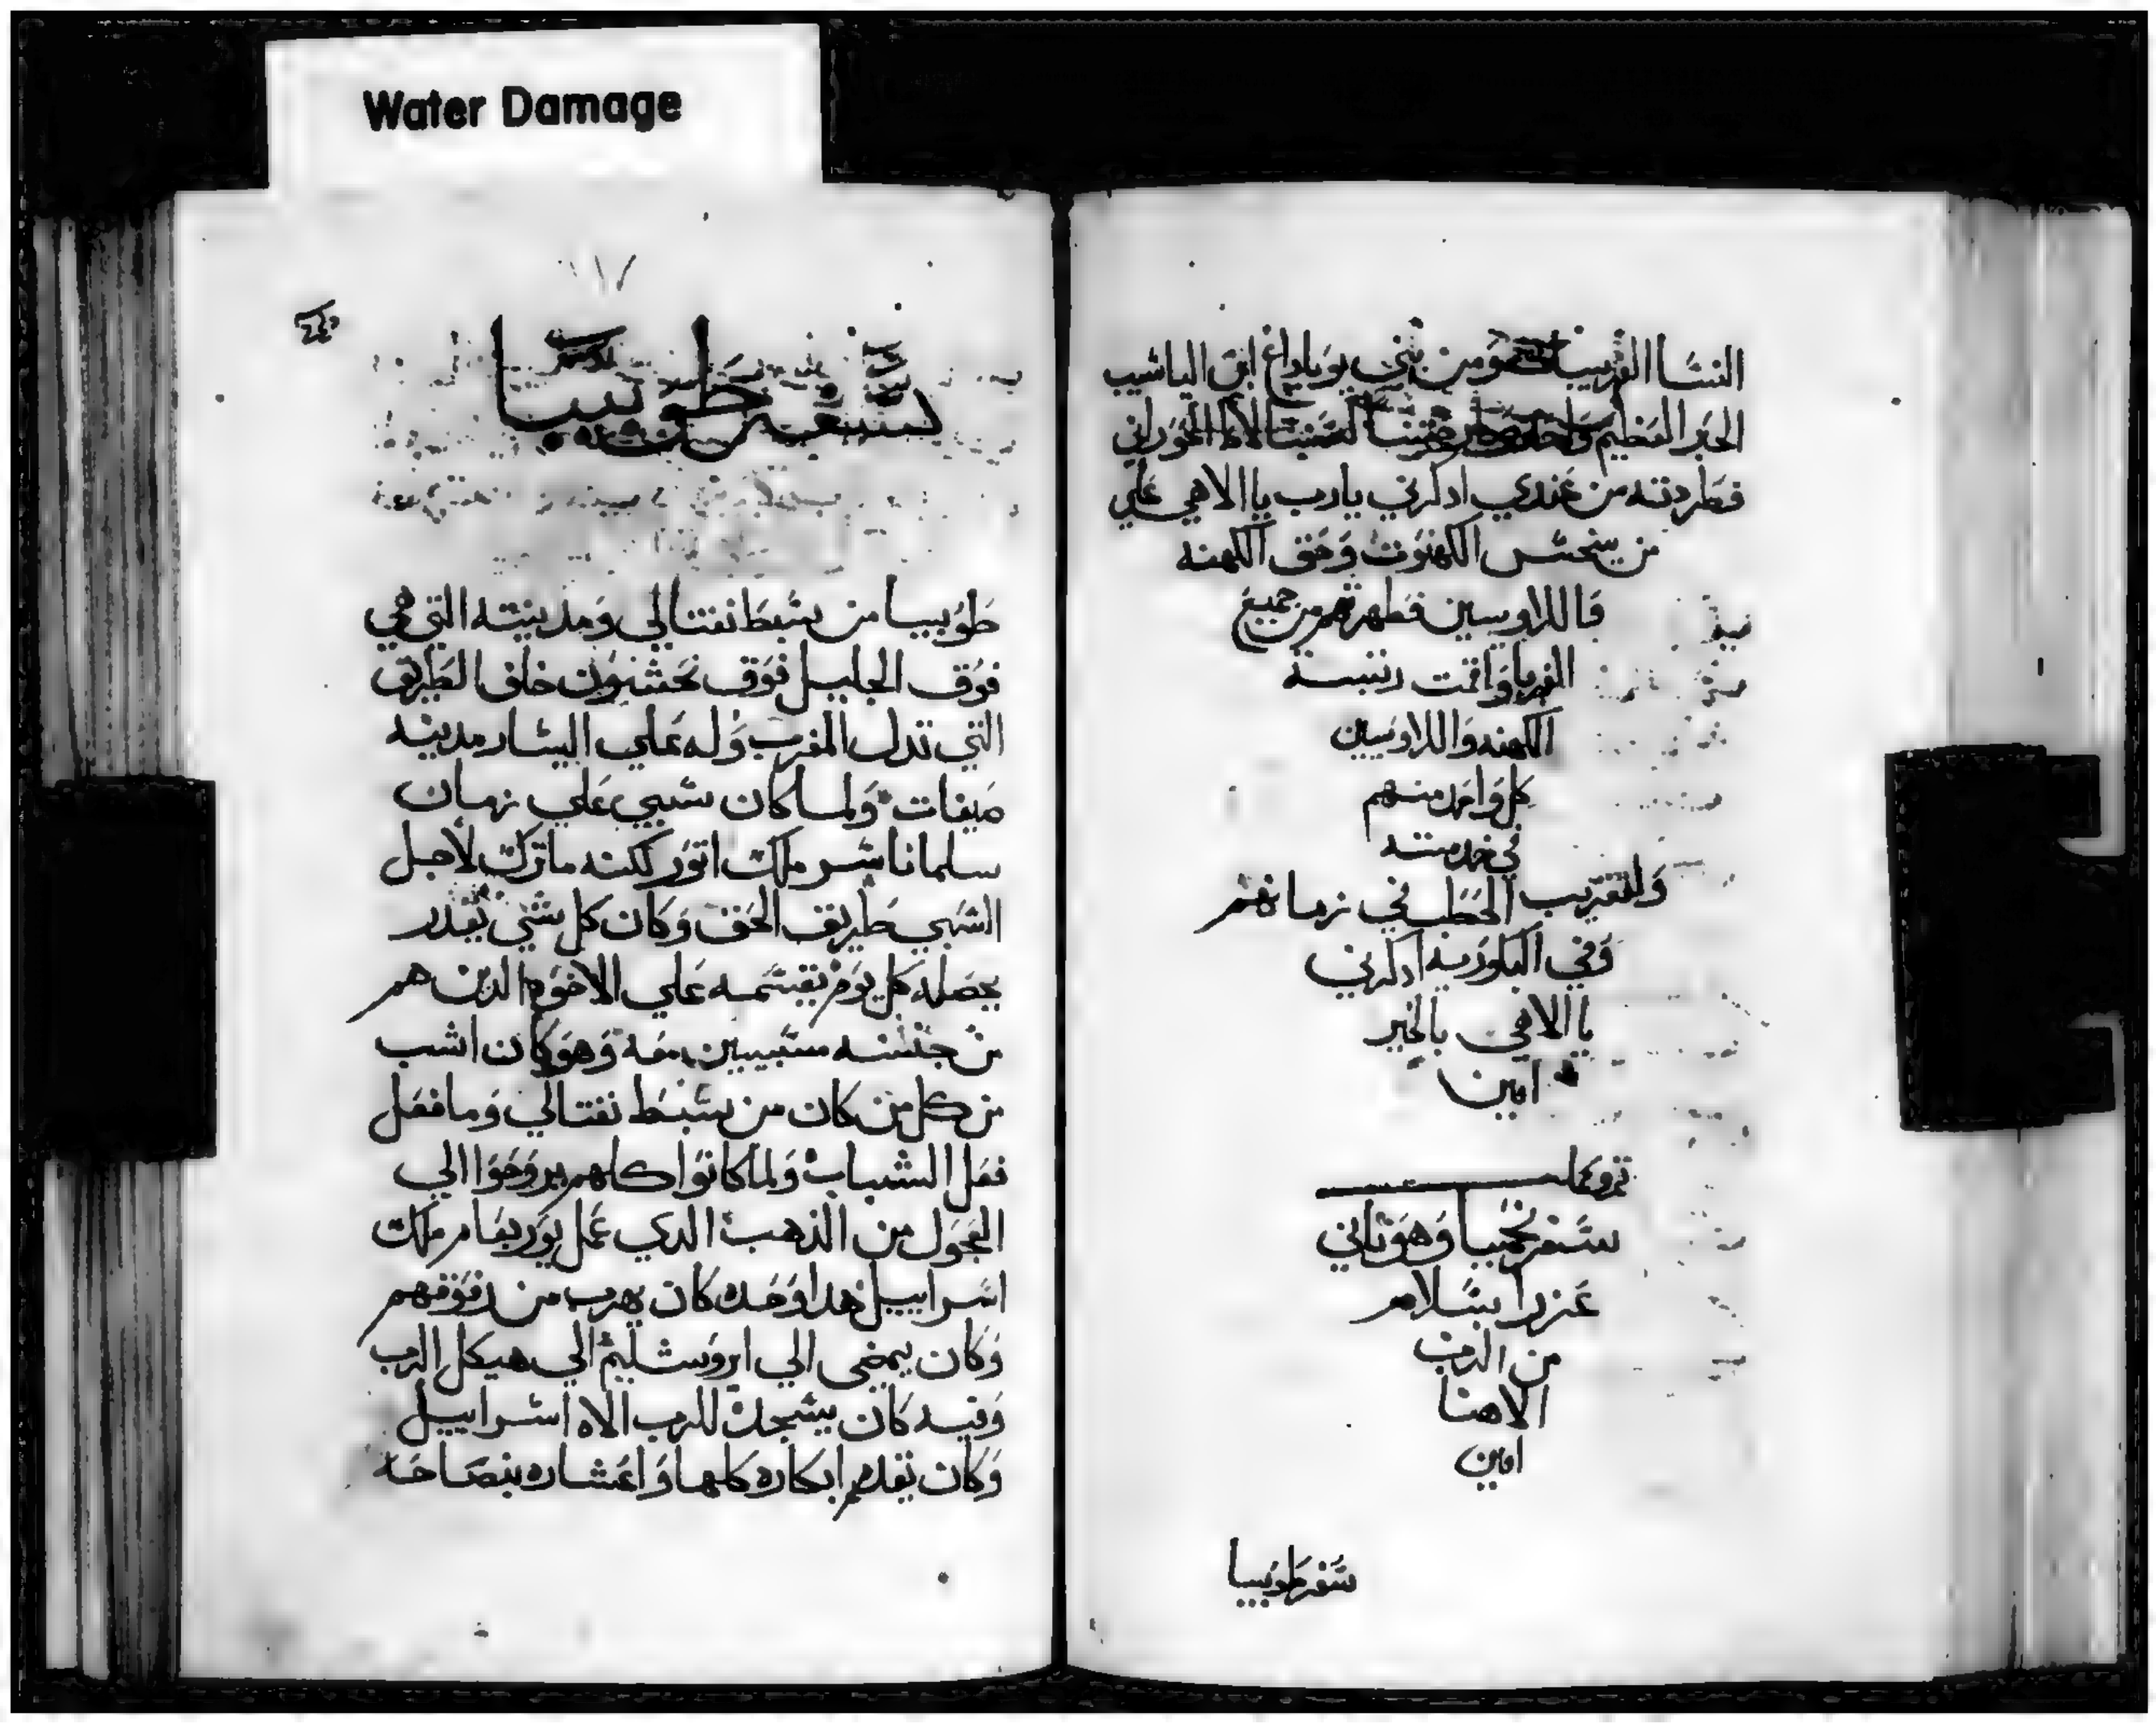 Water Damage
النسا الغريبات ومن بني يوياداع ابن الياشيب
الحبر العظيم واحد ختنا لسنبالاط الحوراني
فطردته من عندي ادكرني يارب ياالاهي علي
من ينجس الكهنوت وحق الكهنه
فاللاويين فطهرتهم من جميع
الغربا واقمت رتبة
الكهنه واللاويين
كل واحد منهم
في خدمته
ولتقريب الحطب في زمانهم
وفي الباكوريه ادكرني
ياالاهي بالخير
امين
تم وكمل
سفر نحميا وهو تاني
عزرا بسلام
من الرب
الاهنا
امين
سفر طوبيا
سفر طوبيا
طوبيا من سبط نفتالي ومدينته التي هي
فوق الجليل فوق نحشون خلف الطريق
التي تدل المغرب وله علي اليسار مدينه
صيفات ولما كان سبي علي زمان
سلماناشر ملك اتور لكنه ماترك لاجل
السبي طريق الحق وكان كل شي يقدر
يحصله كل يوم يقسمه علي الاخوه الدين هم
من جنسه مسبيين معه وهو كان اشب
من كل من كان من سبط نفتالي وما فعل
فعل الشباب ولما كانوا كلهم يروحوا الي
العجول من الذهب الدي عمل يوربعام ملك
اسراييل هدا وحده كان يهرب من رفوقهم
وكان يمضي الي ايروشليم الي هيكل الرب
وفيه كان يسجد للرب الاه اسراييل
وكان يقدم ابكاره كلها واعشاره بنصاحه